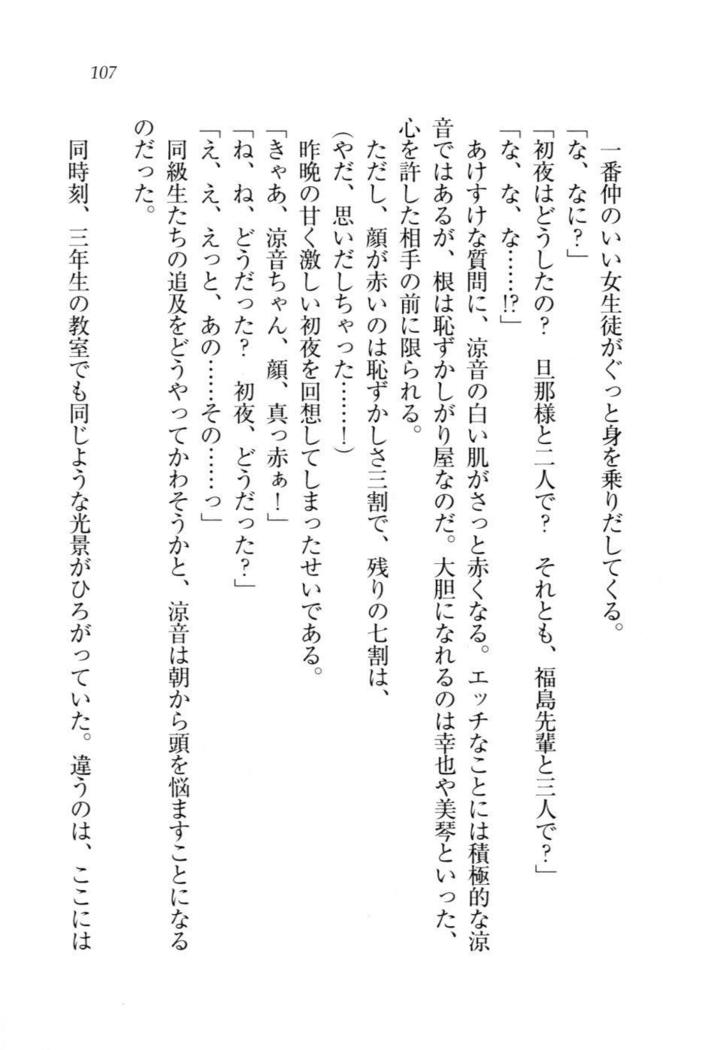 107
一番仲のいい女生徒がぐっと身を乗りだしてくる。
「な、なに?」
「初夜はどうしたの?　旦那様と二人で?　それとも、福島先輩と三人で?」
「な、な、な……!?」
あけすけな質問に、涼音の白い肌がさっと赤くなる。エッチなことには積極的な涼
音ではあるが、根は恥ずかしがり屋なのだ。大胆になれるのは幸也や美琴といった、
心を許した相手の前に限られる。
ただし、顔が赤いのは恥ずかしさ三割で、残りの七割は、
(やだ、思いだしちゃった……!)
昨晩の甘く激しい初夜を回想してしまったせいである。
「きゃあ、涼音ちゃん、顔、真っ赤ぁ!」
「ね、ね、どうだった?　初夜、どうだった?」
「え、え、えっと、あの……その……っ」
同級生たちの追及をどうやってかわそうかと、涼音は朝から頭を悩ますことになる
のだった。
同時刻、三年生の教室でも同じような光景がひろがっていた。違うのは、ここには